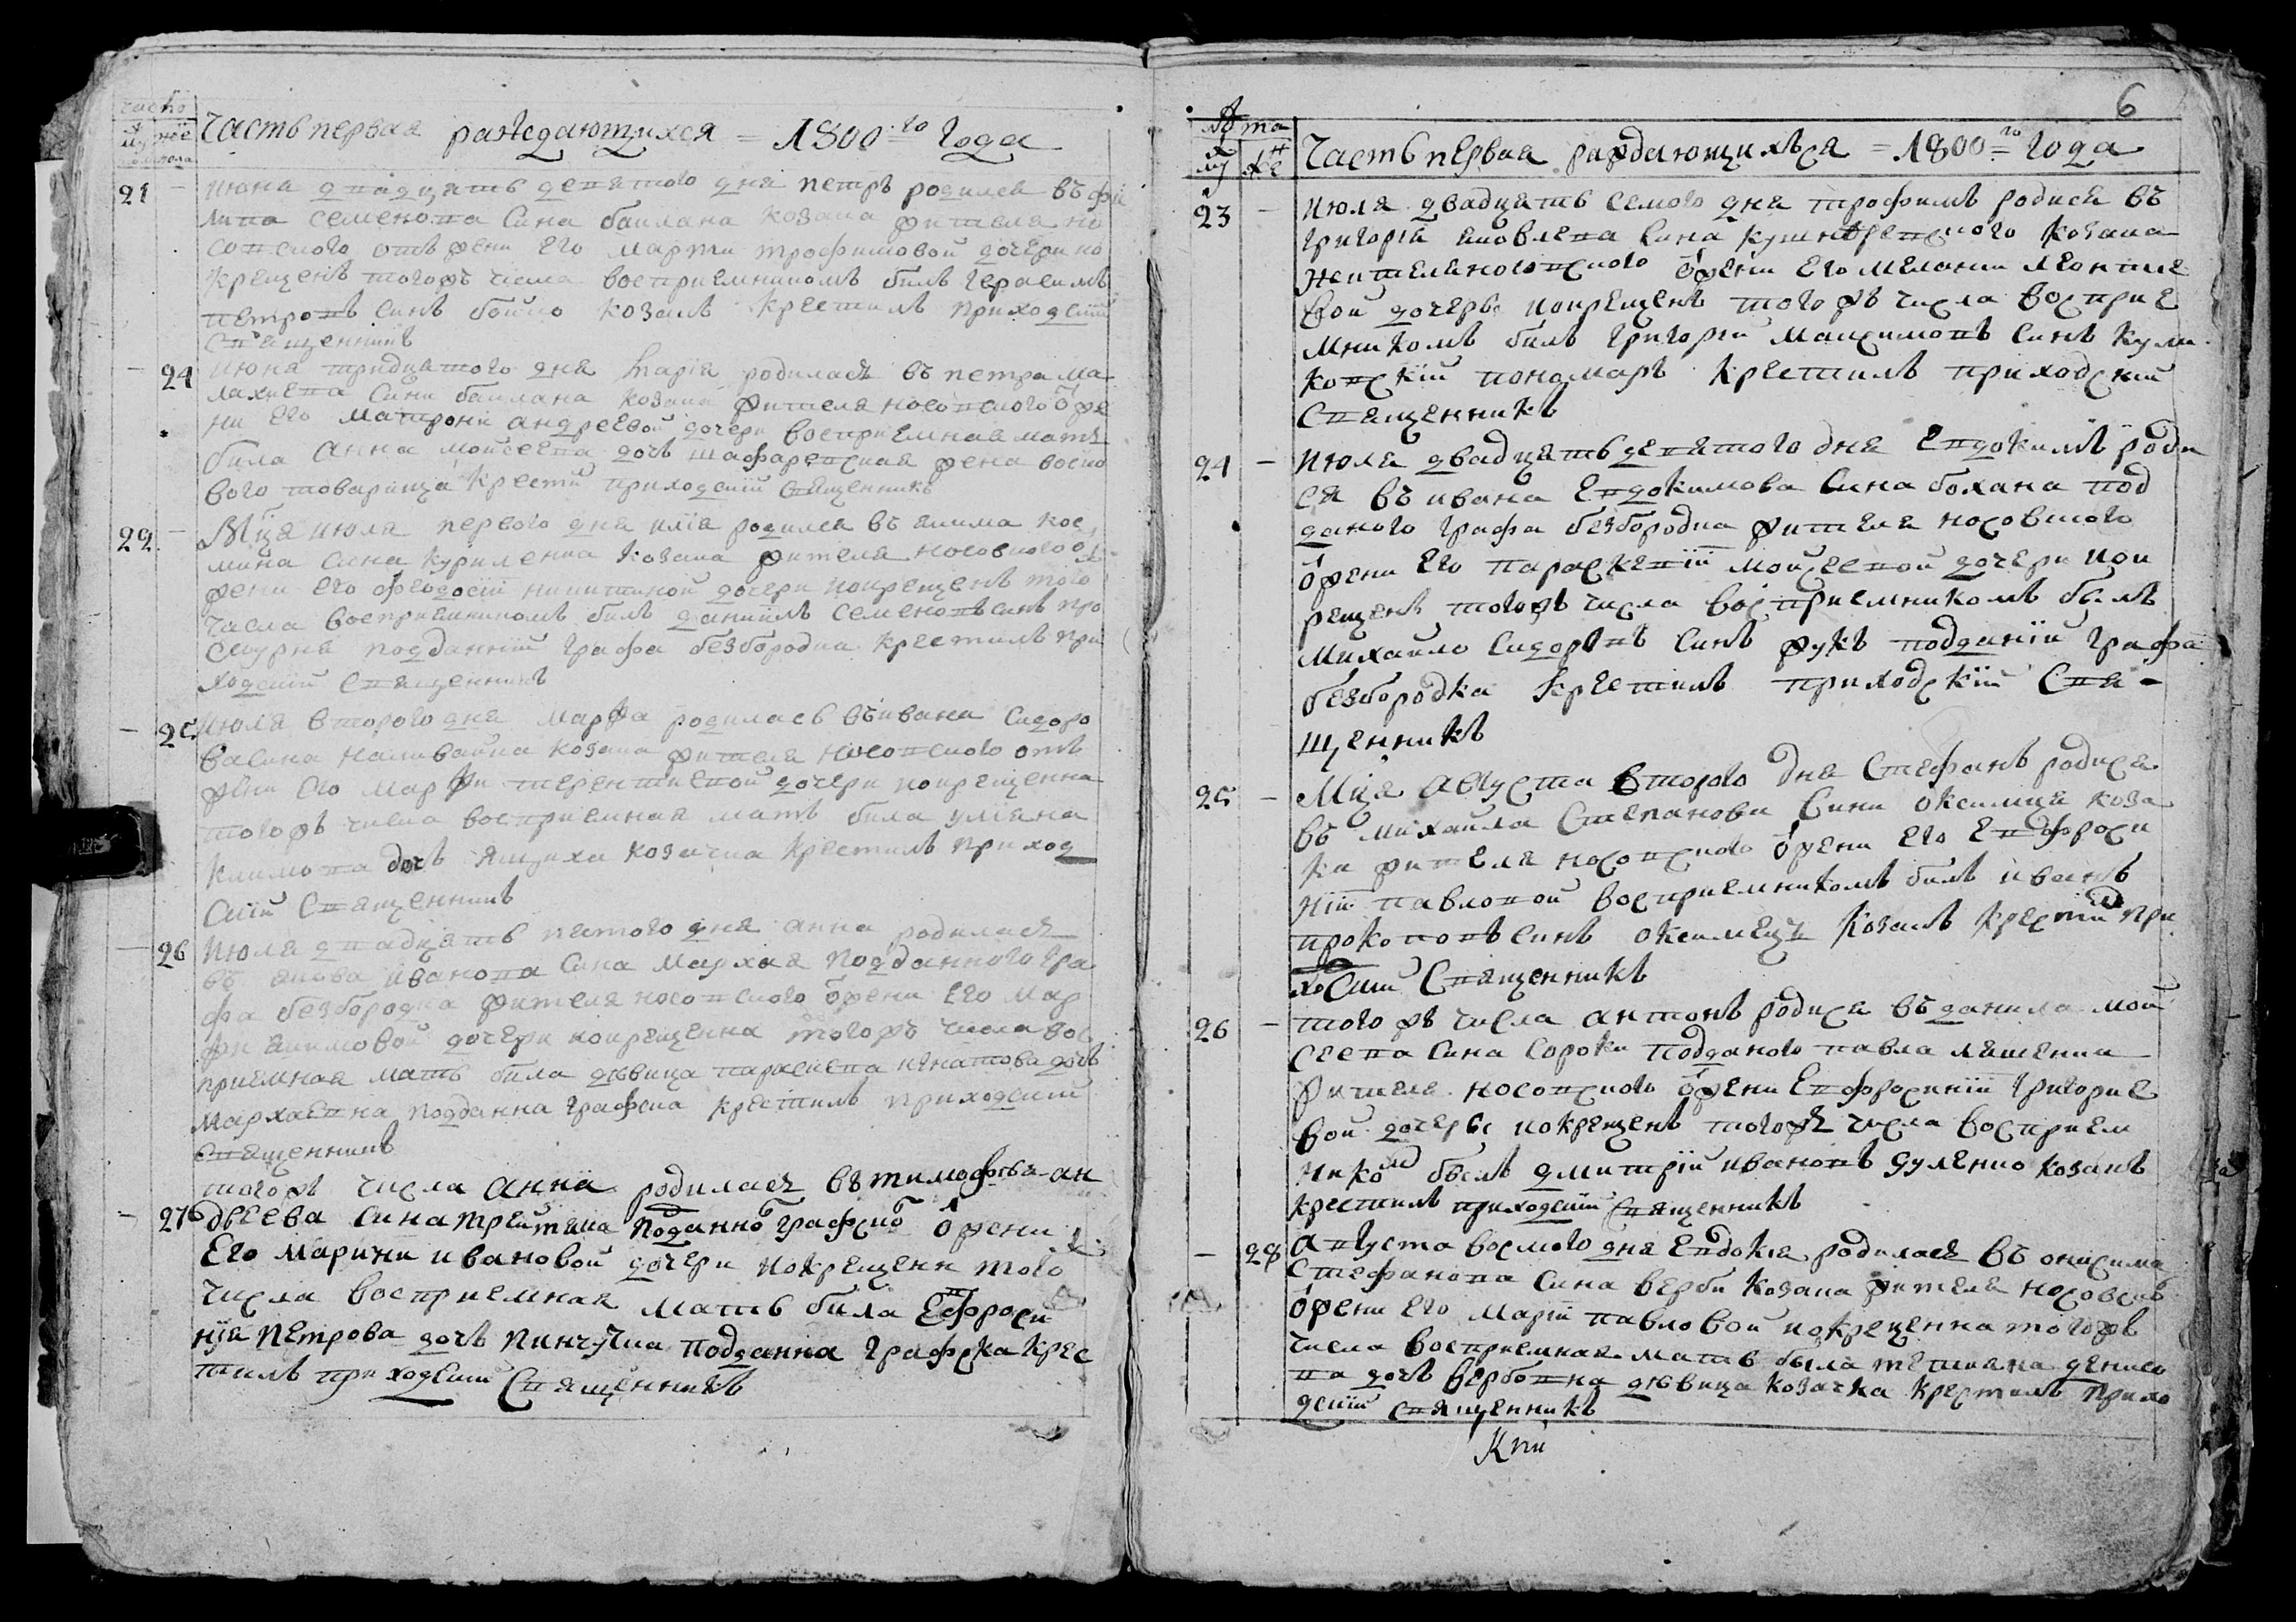 число
Часть первая раждающихся = 1800-го Года
21 – июня двадцять девятого дня петръ родился въ фи
липа семенова сина баилана козака жителя но
совского отъ жени его марти трофимовой дочери но
крещенъ тогожъ числа восприемникомъ билъ герасимъ
петровъ синъ бойко козакъ крестилъ приходскій
священникъ
– 24 июня тридцятого дня марія родилась въ петра ма
лахиева сини баилана козака жителя носовского ŏ же
ни его матроні андреевой дочери восприемная мать
била анна мойсеева дочъ шафаревская жена воско
вого товарища крести приходскій священникъ
22 – Мця июля первого дня илія родился въ якима кос
мина сина куриленка козака жителя носовского ŏ
жени его феодосіи никитиной дочери и окрещенъ того
числа восприемникомъ билъ даниилъ семеновъ синъ про
скурня подданній графа безбородка крестилъ при
ходскій священникъ
– 25 июля второго дня марфа родилась въ ивана сидоро
ва сина наливайка козака жителя носовского отъ
жени его марфи терентиевой дочери и окрещенна
тогожъ числа восприемная мать била уліяна
климова дочъ ящиха козачка крестилъ приход
скій священникъ
– 26 июля двадцять пятого дня анна родилась
въ якова иванова сина мархая подданного гра
фа безбородка жителя носовского ŏ жени его мар
фи якимовой дочери и окрещенна тогожъ числа вос
приемная мать била дѣвица параскева игнатова дочъ
мархаевна подданна графска крестилъ приходскій
священникъ
тогожъ числа анна родилась въ тимофѣа ан
– 27 дреева сина трейтяка подданно графско ŏ жени
его марини ивановой дочери и окрещенн того
числа восприемная мать била Ефроси
нія петрова дочъ пинчучка подданна графска крес
тилъ приходскій священникъ
6
лѣта
Часть первая раждающихъся = 1800-го года
23 – июля двадцять семого дня трофимъ родися въ
григорія яковлева сина кушнѣревского козака
жителя носовского ŏ жени его меланіи леонтие
вой дочеры и окрещенъ тогожъ числа восприе
мникомъ билъ григорій максимовъ синъ кули
ковскій пономаръ крестилъ приходскій
священникъ
24 – июля двадцять девятого дня Евдокимъ роди
ся въ ивана Евдокимова сина бохана под
даного графа безбородка жителя носовского
ŏ жени его параскевіи мойсеевой дочери и ок
рещенъ тогожъ числа восприемникомъ билъ
михайло сидоровъ синъ жукъ подданій графа
безбородка крестилъ приходскій свя-
щенникъ
25 – Мця августа второго дня стефанъ родися
въ михаила степанови сини оксимця коза
ка жителя носовского ŏ жени его Евфроси
ніи павловой восприемникомъ билъ иванъ
прокоповъ синъ оксимецъ козакъ крестій при
хоскій священникъ
26 – тогожъ числа антонъ родися въ данила мой
сеева сина сороки подданого павла ляшенка
жителя носовского ŏ жени Евфросиніи григорие
вой дочеры и окрещенъ тогожъ числа восприем
нико бысть дмитрій ивановъ дуленко козакъ
крестилъ приходскій священникъ
– 28 августа восмого дня Евдокія родилася въ онисима
стефанова сина верби козака жителя носовско
ŏ жени его маріи павловой и окрещенна тогожъ
числа восприемная мать была тетияна денисо
ва дочъ вербовна дѣвица козачка крестилъ прихо
дскій священникъ